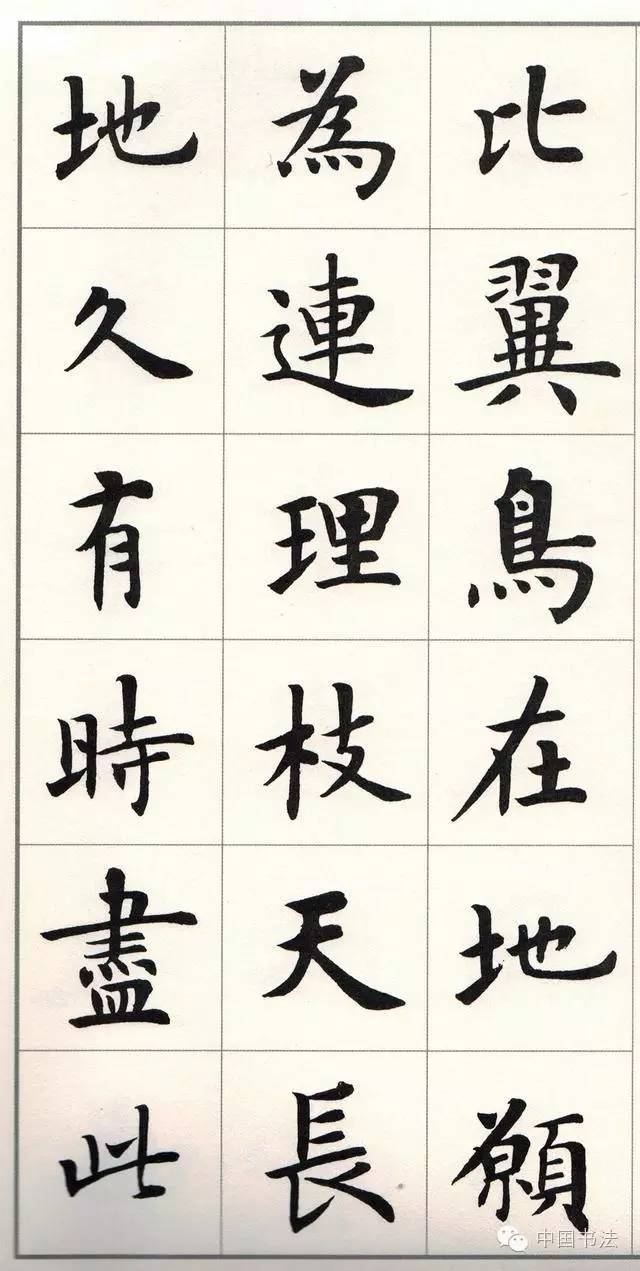 比翼鳥在地願
為連理枝天長
地久有時盡此
中国书法